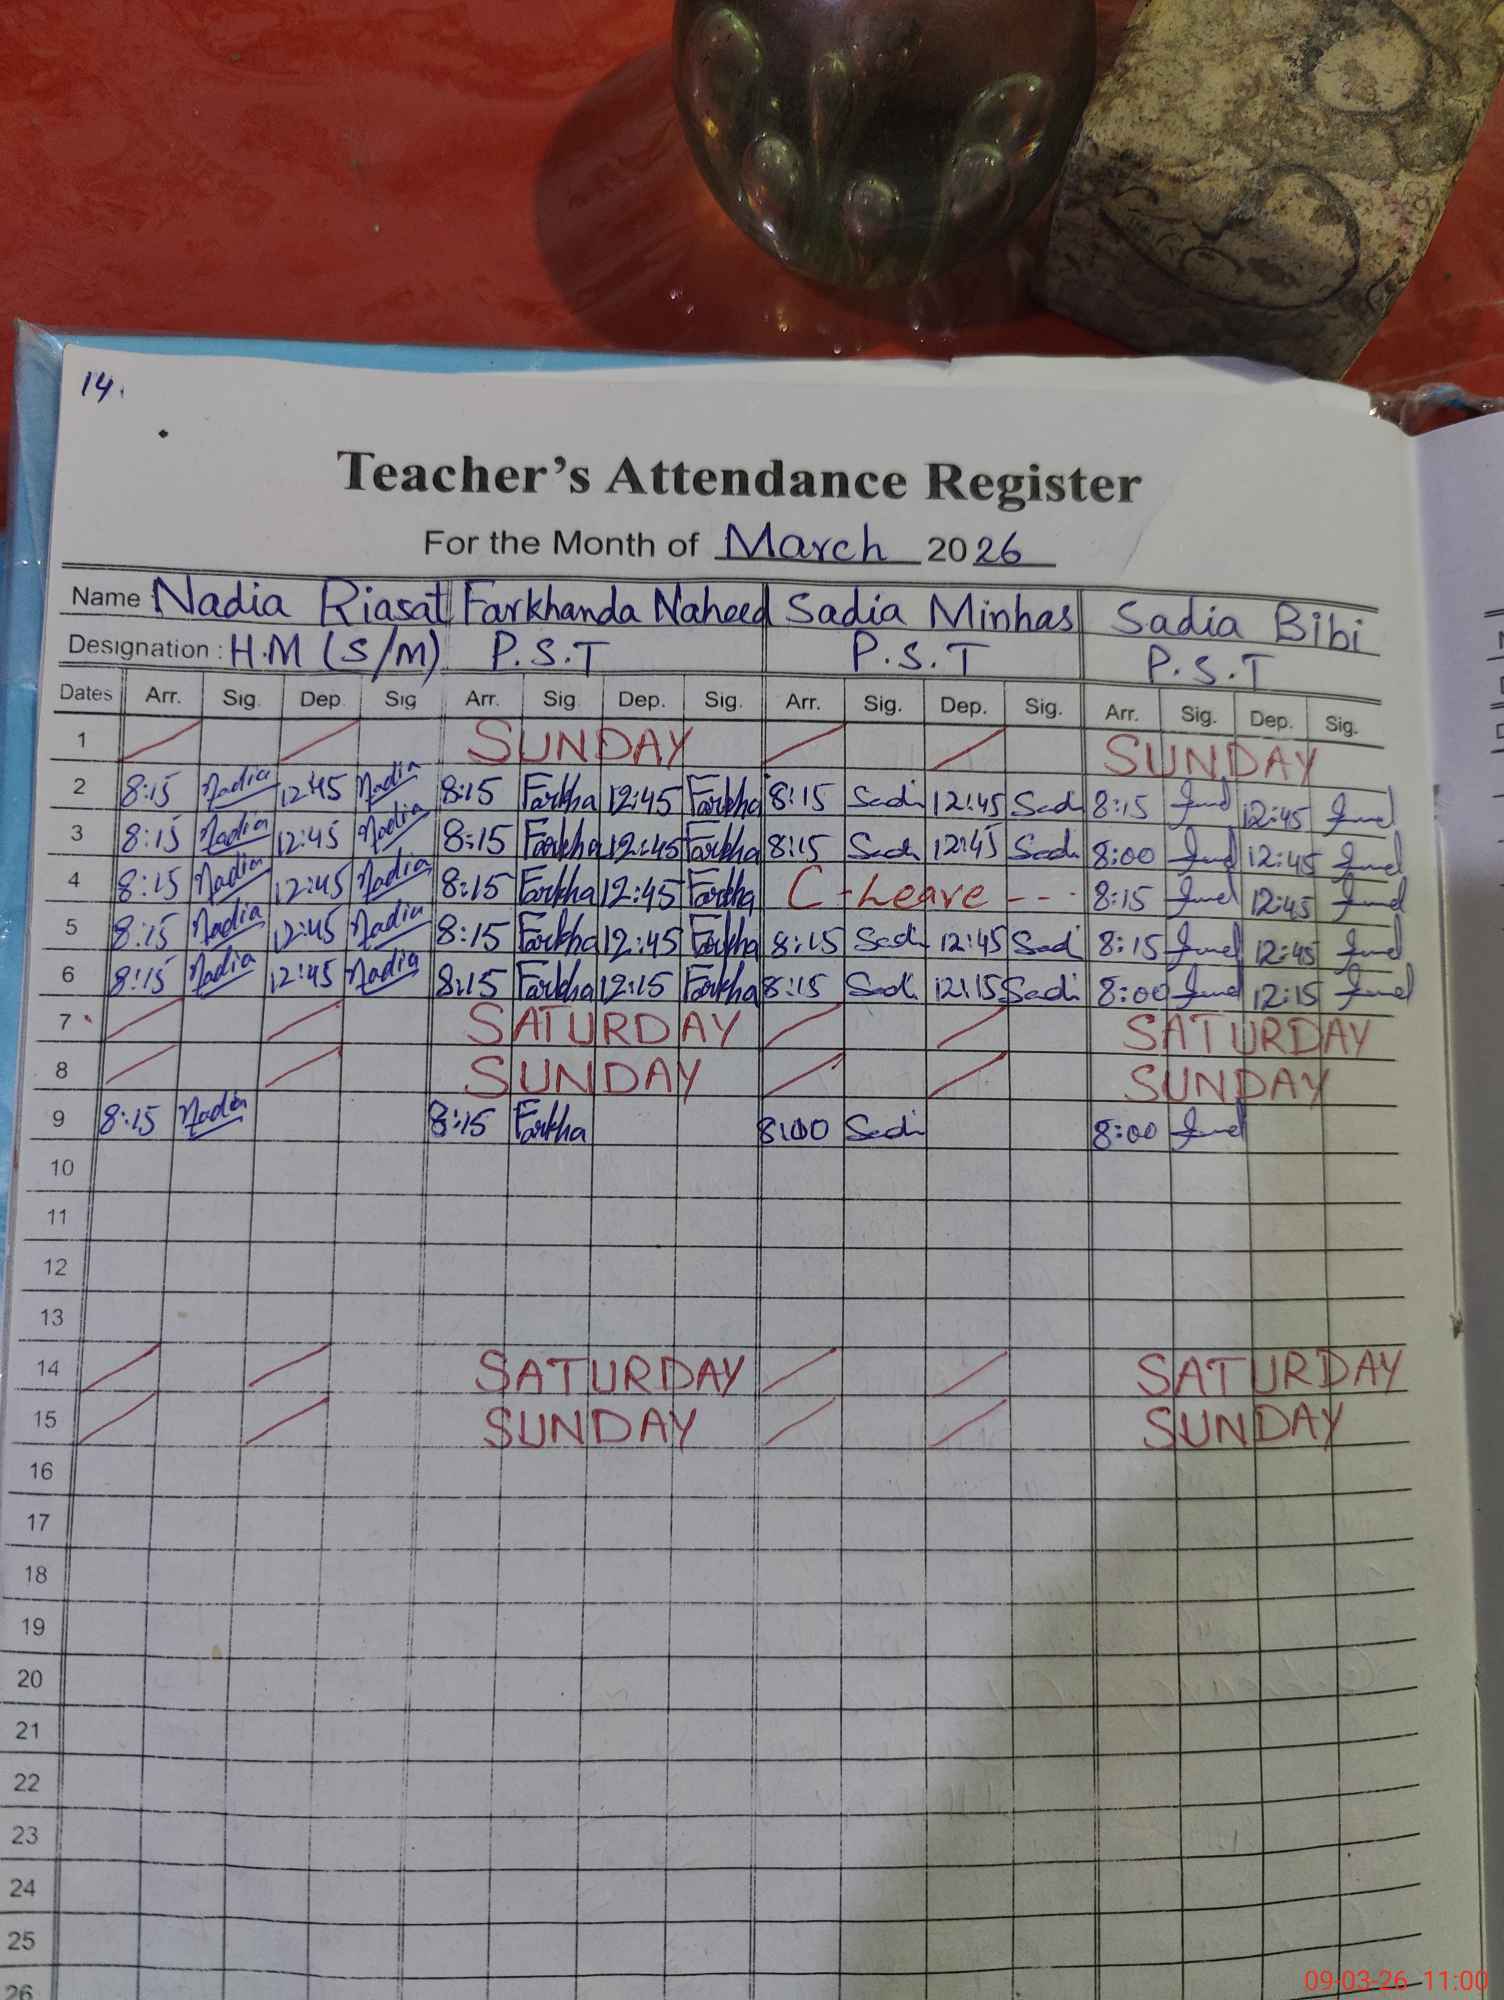 14.
Teacher's Attendance Register
For the Month of March 2026
Name Nadia Riasat Farkhanda Naheed Sadia Minhas Sadia Bibi
Designation : H.M (S/M) P.S.T P.S.T P.S.T
Dates Arr. Sig. Dep. Sig Arr. Sig. Dep. Sig. Arr. Sig. Dep. Sig. Arr. Sig. Dep. Sig.
1 SUNDAY SUNDAY
2 8:15 Nadia 12:45 Nadia 8:15 Farkha 12:45 Farkha 8:15 Sadi 12:45 Sadi 8:15 12:45
3 8:15 Nadia 12:45 Nadia 8:15 Farkha 12:45 Farkha 8:15 Sadi 12:45 Sadi 8:00 12:45
4 8:15 Nadia 12:45 Nadia 8:15 Farkha 12:45 Farkha C-Leave --- 8:15 12:45
5 8:15 Nadia 12:45 Nadia 8:15 Farkha 12:45 Farkha 8:15 Sadi 12:45 Sadi 8:15 12:45
6 8:15 Nadia 12:45 Nadia 8:15 Farkha 12:15 Farkha 8:15 Sadi 12:15 Sadi 8:00 12:15
7 SATURDAY SATURDAY
8 SUNDAY SUNDAY
9 8:15 Nadia 8:15 Farkha 8:00 Sadi 8:00
10
11
12
13
14 SATURDAY SATURDAY
15 SUNDAY SUNDAY
16
17
18
19
20
21
22
23
24
25
26
09-03-26 11:00